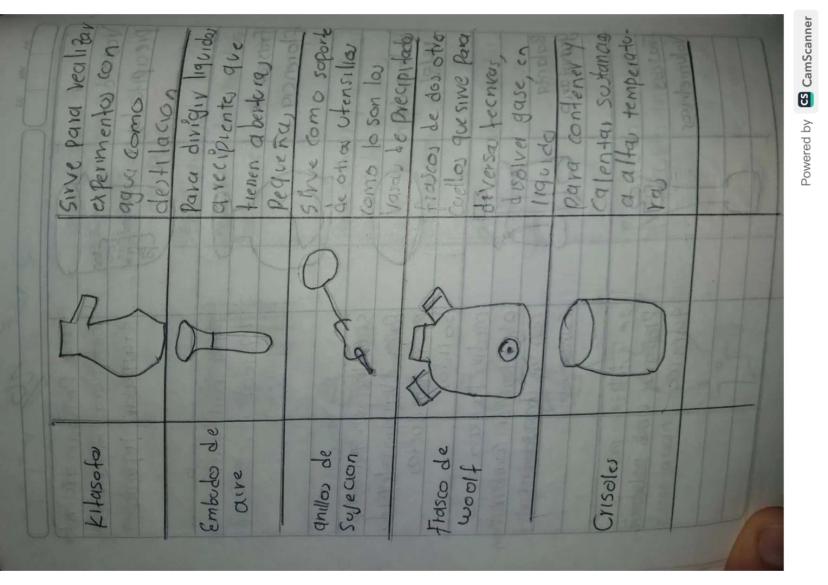 Kitasato
Sirve para realizar
experimentos con
agua como
destilacion
Embudo de
aire
Para dirigir liquidos
a recipientes que
tienen aberturas
pequeñas
anillos de
Sujecion
Sirve como soporte
de otros utensilios
como lo son los
vasos de precipitado
Frasco de
woolf
frascos de dos otre
cuellos que sirve Para
diversa tecnicas,
disolver gase, en
liquido
Crisoles
para contener y
calentar sutancias
a altas temperatu-
ras
Powered by CS CamScanner